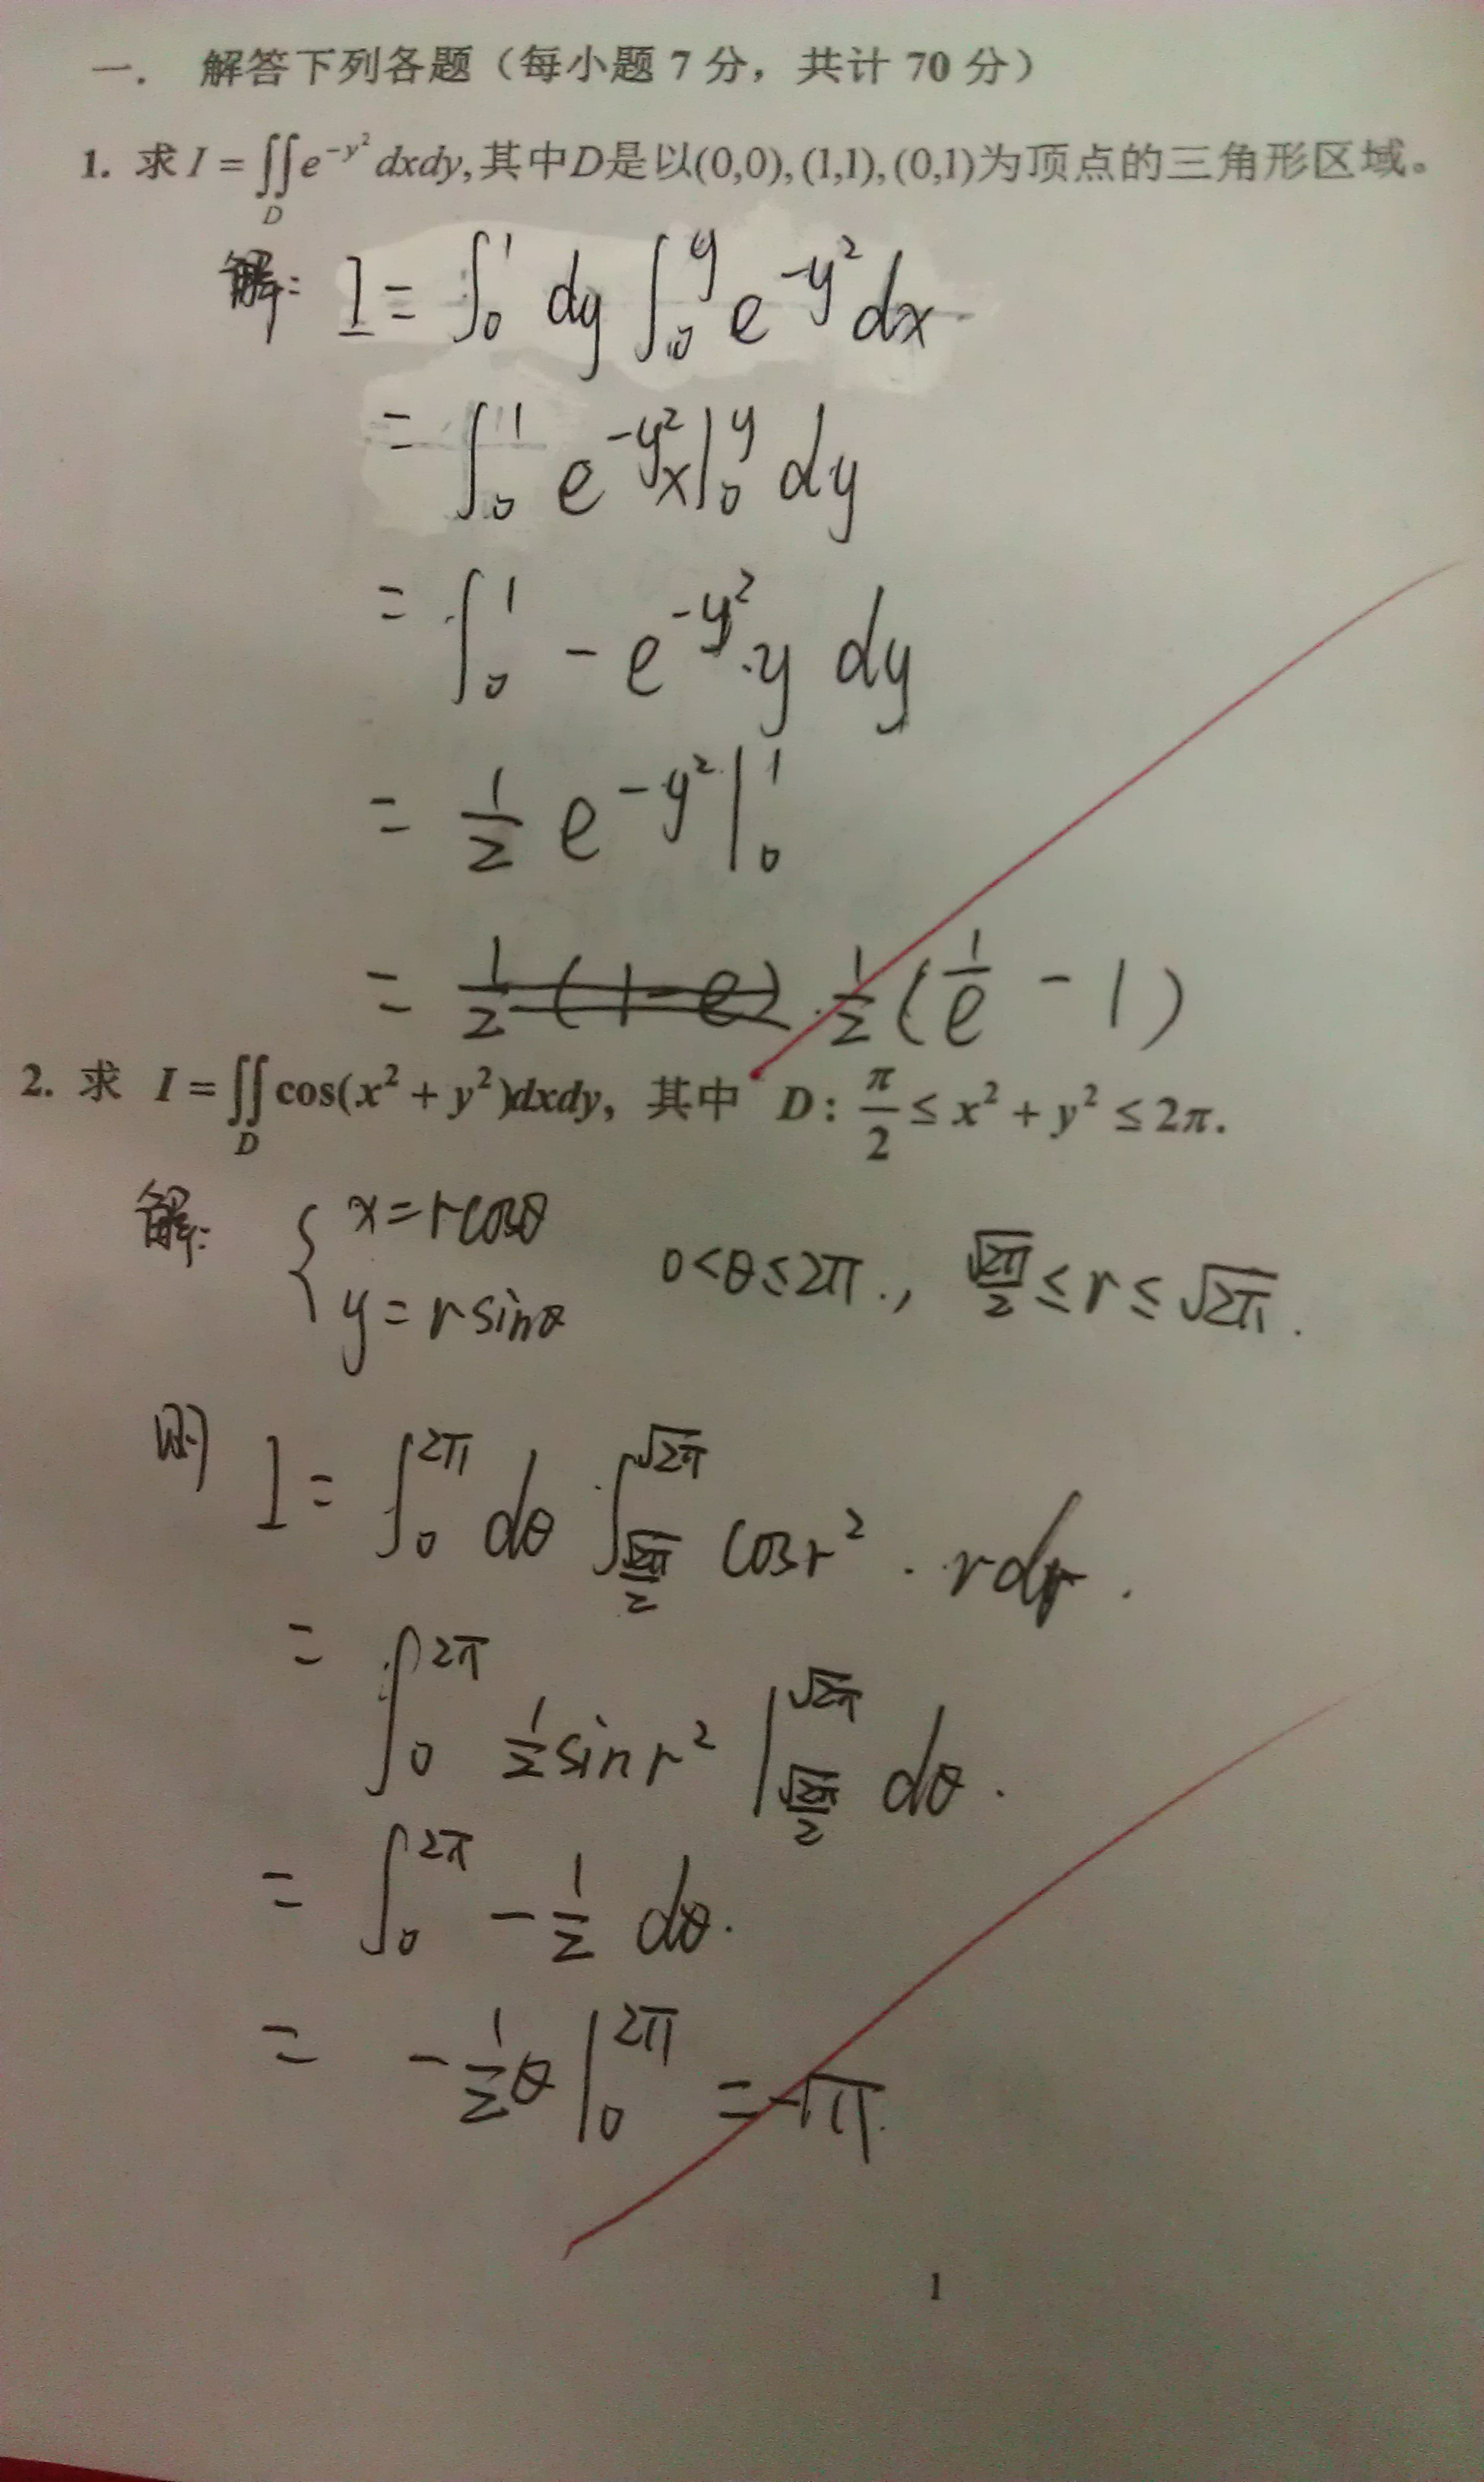 一. 解答下列各题（每小题 7 分，共计 70 分）
1. 求 I = ∬_D e^{-y²} dxdy, 其中D是以(0,0), (1,1), (0,1)为顶点的三角形区域。
解: I = ∫_0^1 dy ∫_0^y e^{-y²} dx
= ∫_0^1 e^{-y²} x |_0^y dy
= ∫_0^1 - e^{-y²} · y dy
= 1/2 e^{-y²} |_0^1
= 1/2 (1-e) 1/2 (1/e - 1)
2. 求 I = ∬_D cos(x² + y²)dxdy, 其中 D: π/2 ≤ x² + y² ≤ 2π.
解: { x = r cosθ
y = r sinθ 0 < θ ≤ 2π , √2π/2 ≤ r ≤ √2π .
则 I = ∫_0^{2π} dθ ∫_{√2π/2}^{√2π} cos r² · r dr .
= ∫_0^{2π} 1/2 sin r² |_{√2π/2}^{√2π} dθ .
= ∫_0^{2π} - 1/2 dθ .
= - 1/2 θ |_0^{2π} = -π .
1